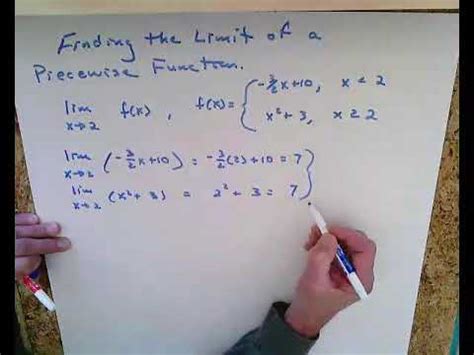 Finding the Limit of a
Piecewise Function.
lim x→2 f(x) , f(x) = { -3/2 x+10, x < 2
x² + 3, x ≥ 2
lim x→2 (-3/2 x+10) = -3/2 (2) + 10 = 7 }
lim x→2 (x² + 3) = 2² + 3 = 7